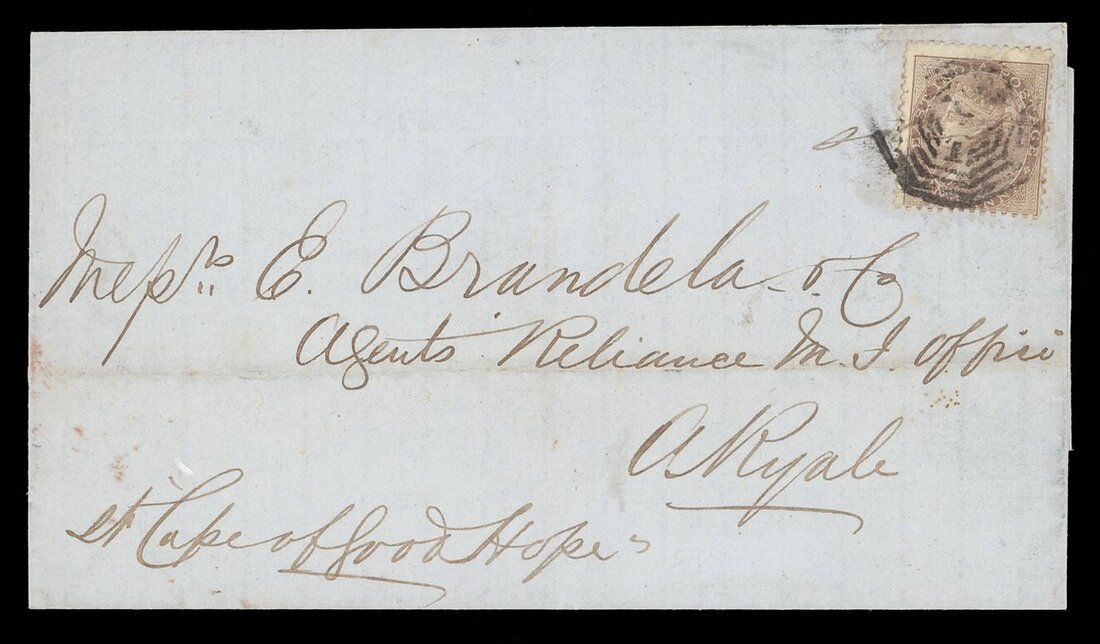 EAST INDIA POSTAGE
1
Messrs. E. Brandela & Co
Agents Reliance M. I. Office
Akyab
St "Cape of Good Hope"